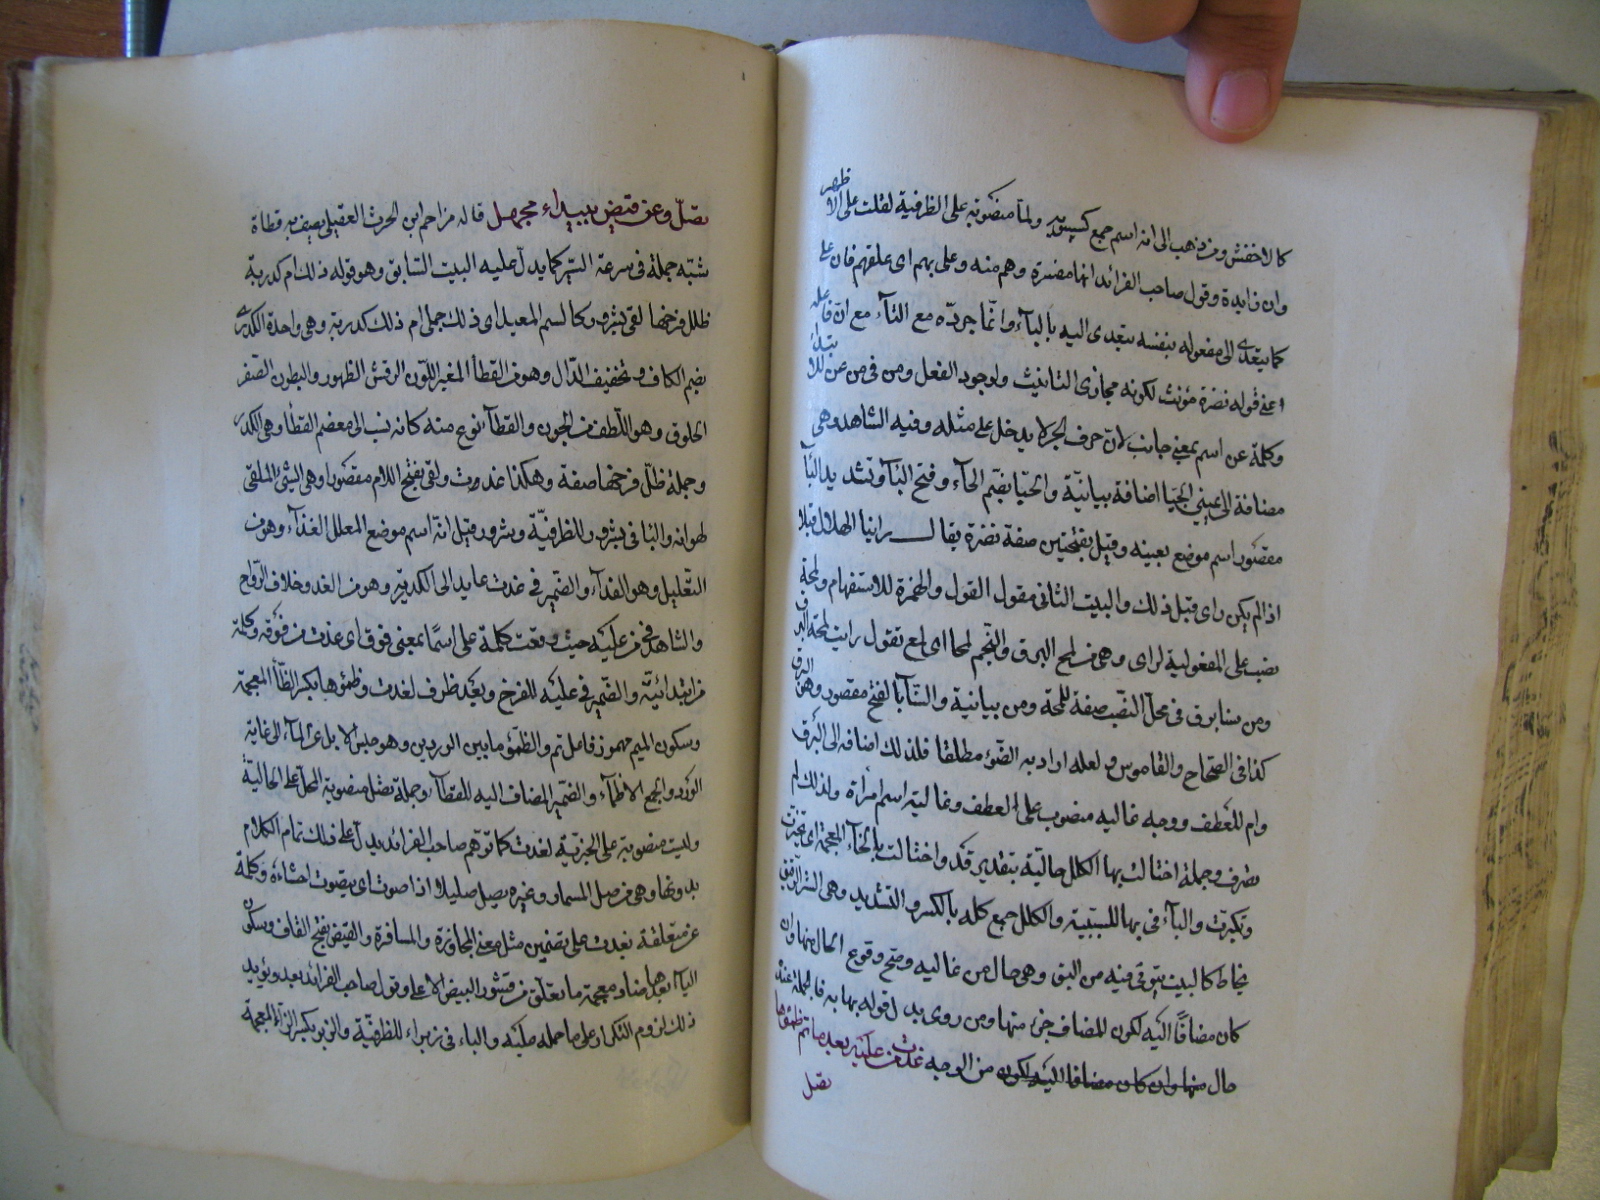 كالاخفش ومن ذهب الى انه اسم جمع ولما منصوبة على الظرفية لقلت على الاظهر
وان زايدة وقول صاحب الفرائد انها مفسرة وهم منه وعلى بهم اى علقهم فان على
كما يتعدى الى مفعوله بنفسه يتعدى اليه بالباء وانما جرده مع التاء مع ان فاعله
اعنى قوله نضرة مؤنث لكونه مجازى التانيث ولوجود الفعل ومن فى من عن للابتداء
وكلمة عن اسم بمعنى جانب لان حرف الجر لا يدخل على مثله وفيه الشاهد وهى
مضافة الى يمينى الحبيا اضافة بيانية والحبيا بضم الحاء وفتح الباء وتشديد الياء
مقصور اسم موضع بعينه وقيل بفتحتين صفة نضرة يقال راينا الهلال قبلا
اذا لم يكن راى قبل ذلك والبيت الثانى مقول القول والهمزة للاستفهام ولمحة
نصب على المفعولية لراى وهى من لمح البرق والنجم لمحا اى لمع تقول رايت لمحة البرق
ومن سنا برق فى محل النصب صفة للمحة ومن بيانية والسنا بالفتح مقصور وهى البرق
كذا فى الصحاح والقاموس ولعله اراد به الضوء مطلقا فلذلك اضافه الى البرق
وام للعطف ووجه عاليه منصوب على العطف وعالية اسم امرأة ولذلك لم
يصرف وجملة اختالت بها الكلل حالية بتقدير قد واختالت بالخاء المعجمة اى تبخترت
وتكبرت والباء فى بها للسببية والكلل جمع كلة بالكسر والتشديد وهى الستر الرقيق
يخاط كالبيت يتوقى فيه من البق وهى حال من عاليه وصح وقوع الحال منها وان
كان مضافًا اليه لكون المضاف جزء منها ومن روى بدل قوله بها به فالجملة عنده
حال منها وان كان مضافا اليه لكون من الوجه غدت من عليه بعد ما تم ظمؤها
تصل
تصل وعن قيض ببيداء مجهل قاله مزاحم ابن الحرث العقيلى يصف به قطاة
شبه جملة فى سرعة السير كما يدل عليه البيت السابق وهو قوله ذلك ام كدرية
ظل فرخها لقى بشرورى كالسم المعيل اى ذلك جملى ام ذلك كدرية وهى واحدة الكدرى
بضم الكاف وتخفيف الدال وهو من القطا المغبر اللون الرقش الظهور والبطون الصفر
الحلوق وهو اللطف من الجون والقطا نوع منه كانه نسب الى معضم القطا وهى الكدر
وجملة ظل فرخها صفة وهكذا غدوت ولقى بفتح اللام مقصورا وهى الشئ الملقى
لهوانه والبا فى بشرورى للظرفية وشرورى قيل انه اسم موضع المعلل الغذاء وهو من
التعليل وهو الغذاء والضمير فى غدت عايد الى الكدرية وهو من الغد وخلاف الرواح
والشاهد فى من عليه حيث وقعت كلمة على اسمًا بمعنى فوق اى غدت من فوقه وكلمة
من ابتدائية والضمير فى عليه للفرخ وبعد ظرف لغدت وظمؤها بكسر الظاء المعجمة
وسكون الميم مهموز فاعل تم والظمؤ ما بين الوردين وهو حبس الابل عن الماء الى غاية
الورد والجمع الاظماء والضمير المضاف اليه للقطاة وجملة تصل منصوبة المحل على الحالية
وليست منصوبة على الخبرية لغدت كما توهم صاحب الفرائد يدل على ذلك تمام الكلام
بدونها وهى من صل المسمار وغيره يصل صليلا اذا صوت اى يصوت احشاؤه وكلمة
عن متعلقة بغدت على تضمين مثل معنى المجاوزة والمسافرة والقيض بفتح القاف وسكون
الياء بعدها ضاد معجمة ما تعلق من قشور البيض الاعلى وقول صاحب الفرائد بعد ويؤيد
ذلك لزوم التكرار على ما حمله عليه والباء فى بزيراء للظرفية والزيز بكسر الزاء المعجمة